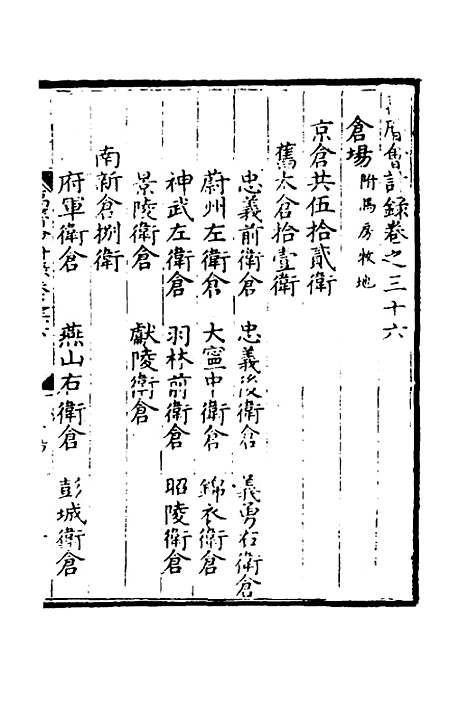 曆會計錄卷之三十六
倉場 附馬房牧地
京倉共伍拾貳衛
舊太倉拾壹衛
忠義前衛倉 忠義後衛倉 義勇右衛倉
蔚州左衛倉 大寧中衛倉 錦衣衛倉
神武左衛倉 羽林前衛倉 昭陵衛倉
景陵衛倉 獻陵衛倉
南新倉捌衛
府軍衛倉 燕山右衛倉 彭城衛倉